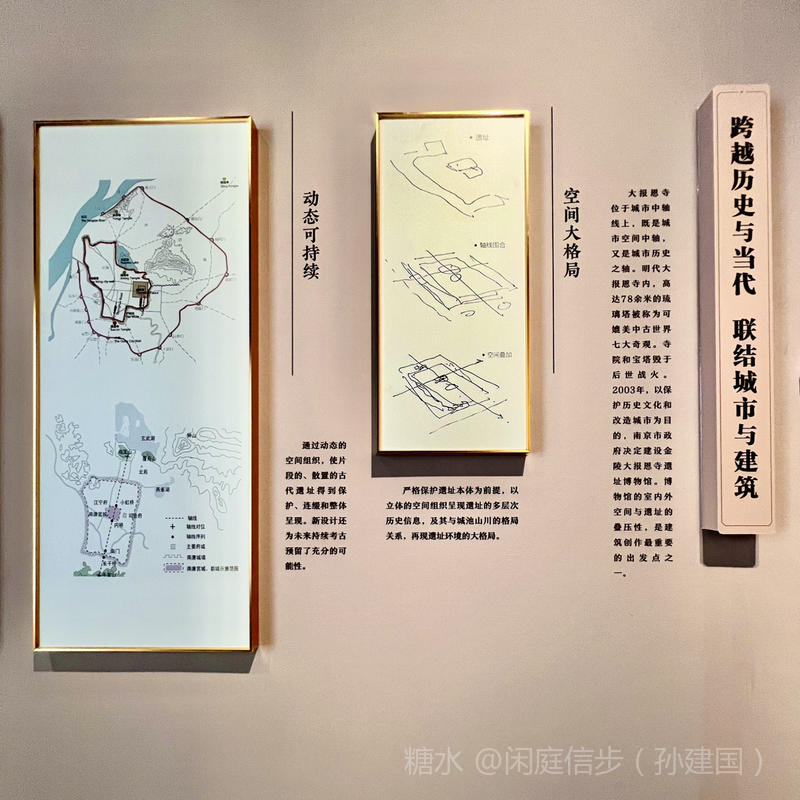 跨越历史与当代 联结城市与建筑
大报恩寺
位于城市中轴
线上，既是城
市空间中轴，
又是城市历史
之轴。明代大
报恩寺内，高
达78余米的琉
璃塔被称为可
媲美中古世界
七大奇观。寺
院和宝塔毁于
后世战火。
2003年，以保
护历史文化和
改造城市为目
的，南京市政
府决定建设金
陵大报恩寺遗
址博物馆。博
物馆的室内外
空间与遗址的
叠压性，是建
筑创作最重要
的出发点之
一。
空间大格局
遗址
轴线围合
空间叠加
严格保护遗址本体为前提，以
立体的空间组织呈现遗址的多层次
历史信息，及其与城池山川的格局
关系，再现遗址环境的大格局。
动态可持续
通过动态的
空间组织，使片
段的、散置的古
代遗址得到保
护、连缀和整体
呈现。新设计还
为未来持续考古
预留了充分的可
能性。
玄武湖
钟山
北苑
燕雀湖
江宁府
小虹桥
南唐宫城
内桥
南门
轴线
轴线对位
轴线序列
主要府城
南唐城墙
南唐宫城、都城示意范围
糖水 @闲庭信步（孙建国）